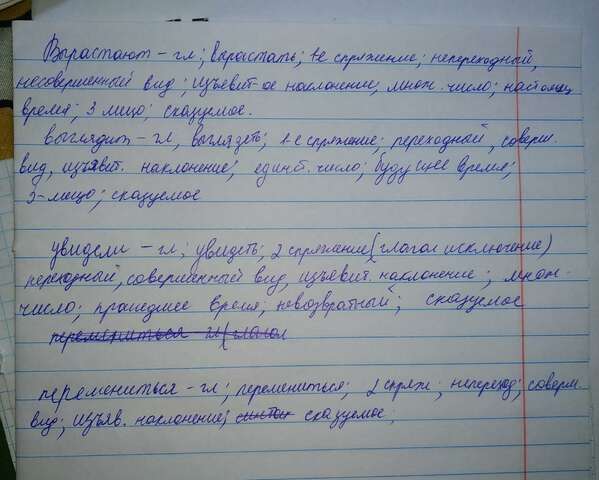 Вырастают - гл; вырастать; 1е спряжение; непереходный,
несовершенный вид; изъевит-ое наклонение; множ. число; настоящ
время; 3 лицо; сказуемое.
выглядит - гл, выглядеть; 1-е спряжение; переходный, соверш.
вид, изъявит. наклонение; единст. число; будущее время;
3-лицо; сказуемое
увидели - гл; увидеть; 2 спряжение (глагол исключение)
переходный, совершенный вид, изъевит. наклонение; множ-
число; прошедшее время; невозвратный; сказуемое
перемениться гл (глагол
перемениться - гл; перемениться; 2 спряж; непереход; соверш.
вид; изъяв. наклонение; синтак сказуемое;